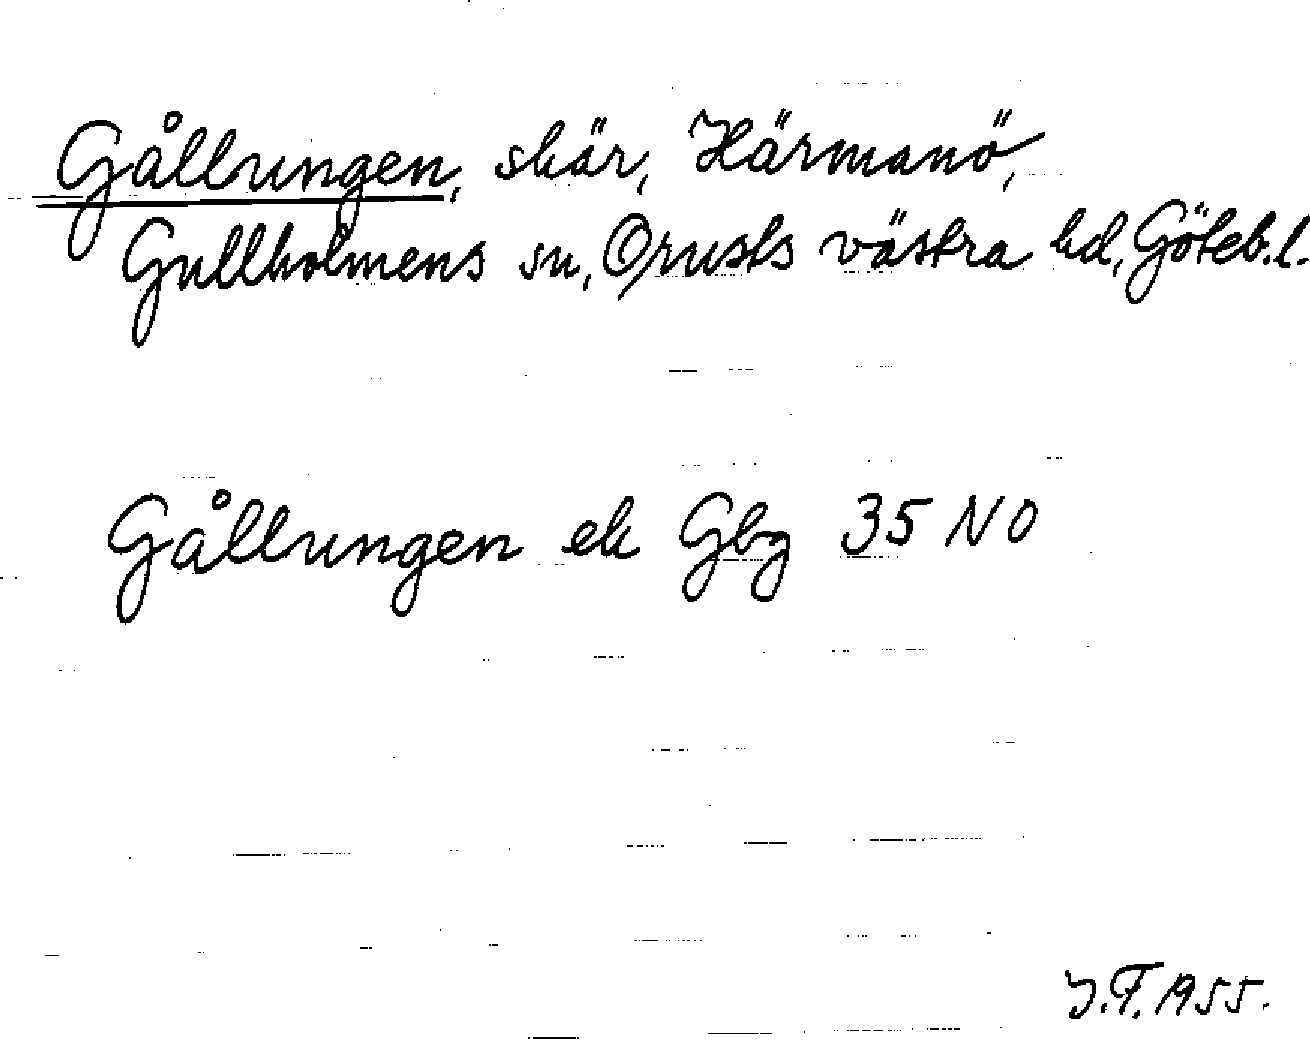 Gållungen, skär, Härmanö,
Gullholmens sn, Orusts västra hd, Göteb.l.
Gållungen ek Gbg 35 NO
J.F. 1955.